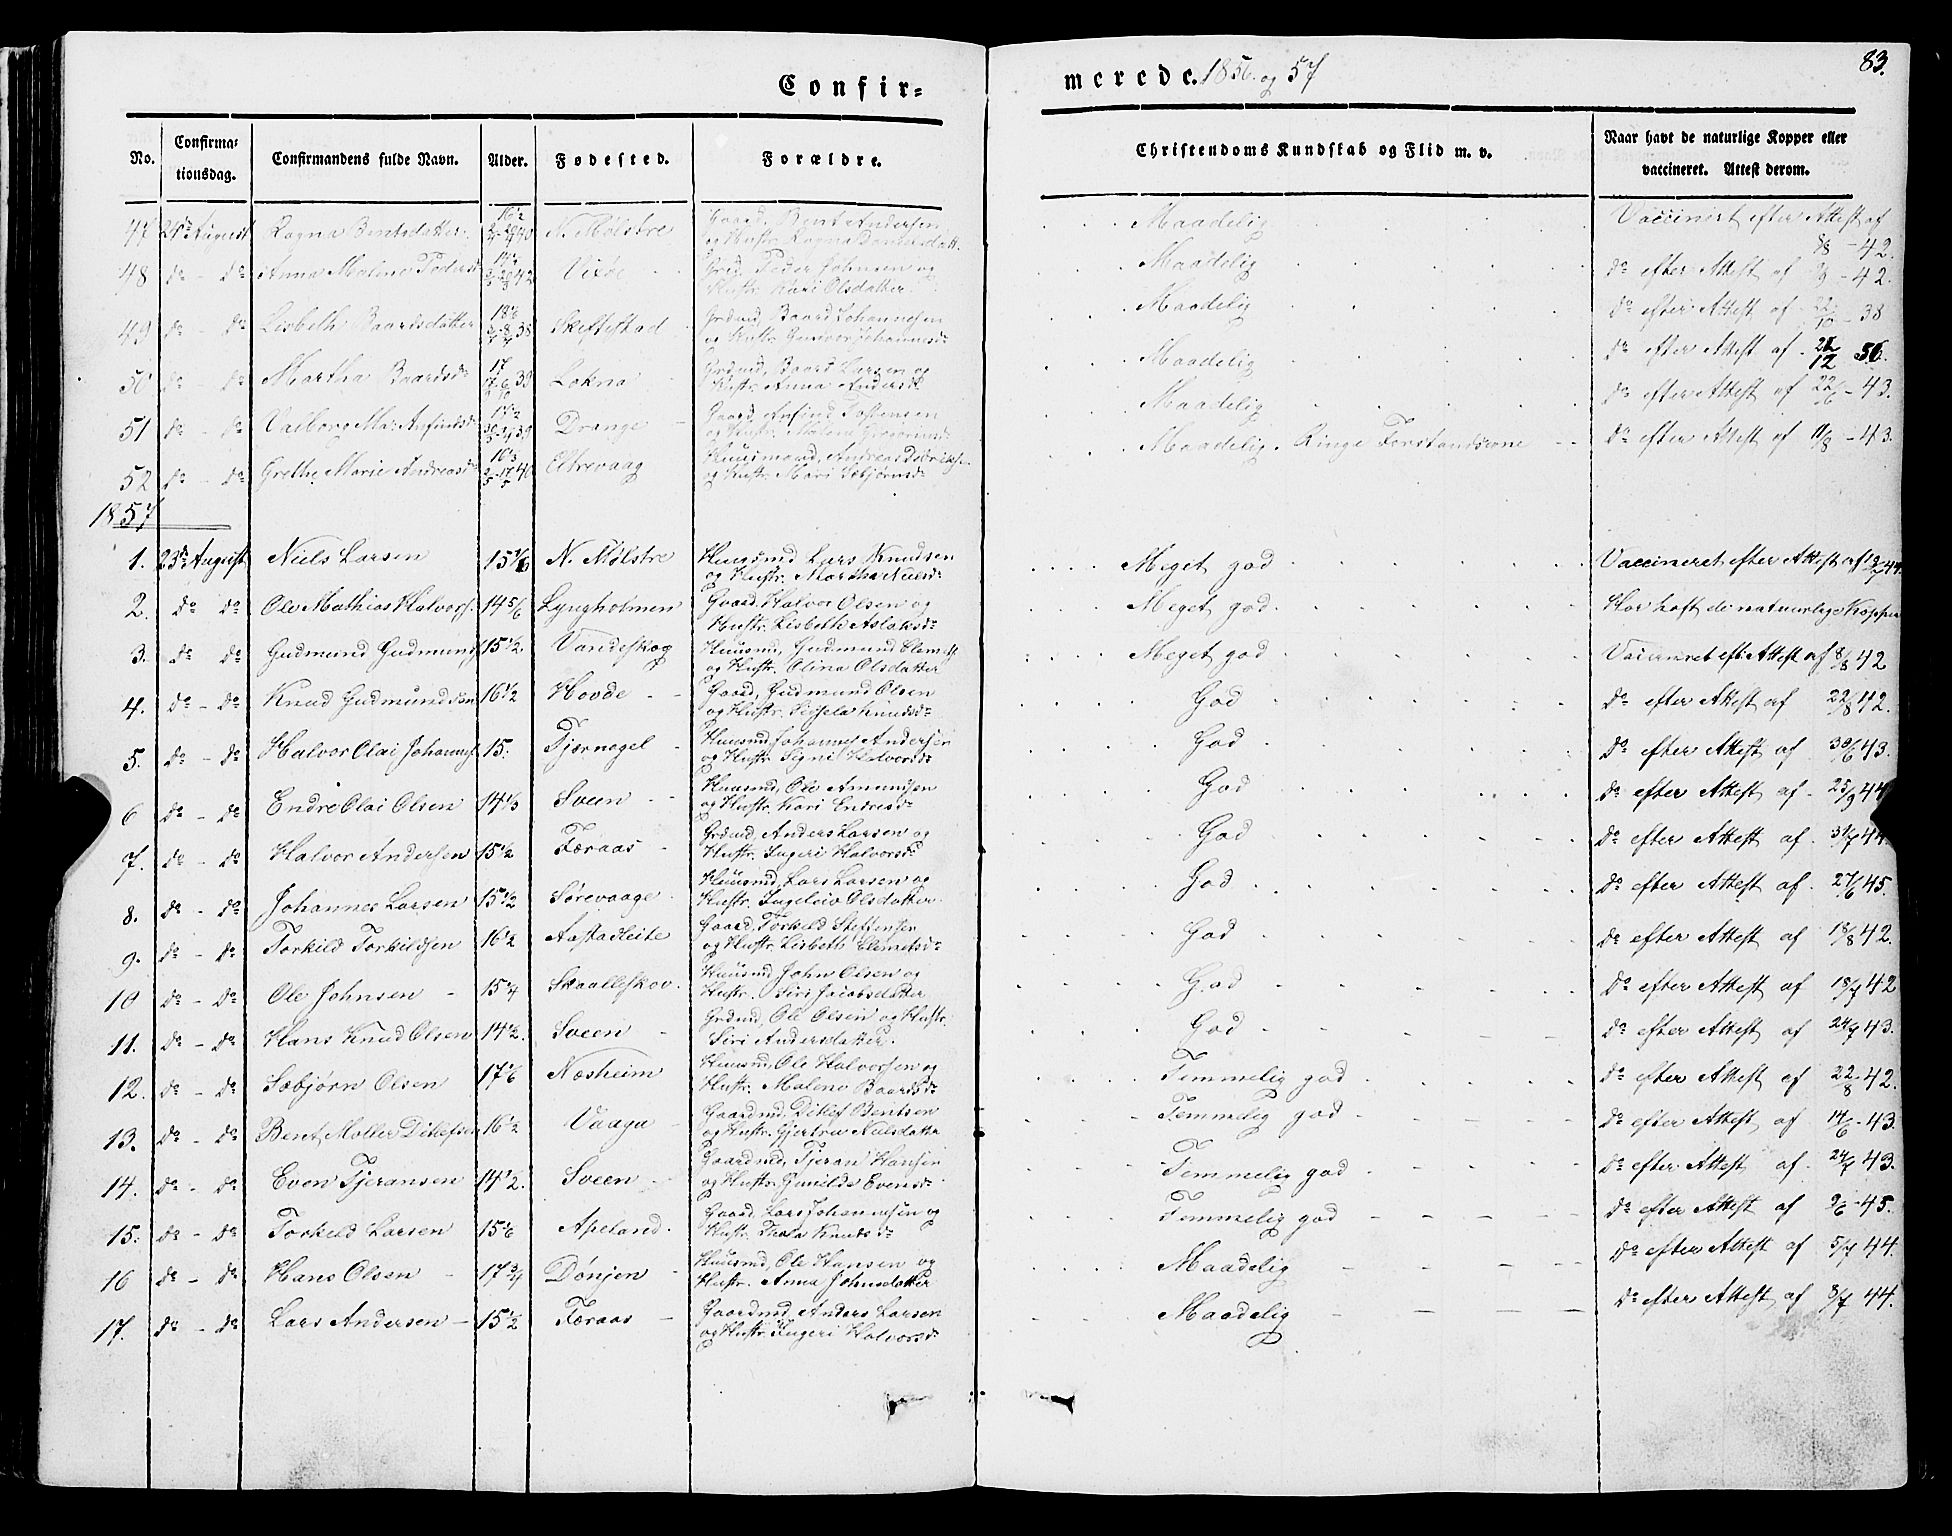 83.
Confir= merede. 1856. og 57
No. Confirma= tionsdag. Confirmandens fulde Navn. Alder. Fødested. Forældre. Christendoms Kundskab og Flid m. v. Naar havt de naturlige Kopper eller vaccineret. Attest derom.
47 21de August Ragna Bentsdatter N. Mølstre Gaard. Bent Andersen Maadelig Vaccineret efter Attest af
og Hustr. Ragna 8/8 - 42.
48 do - do Anna Malene Pedersd Viøe Grdmd, Peder Johnsen og Maadelig do efter Attest af - 42.
Hustr. Kari Olsdatter.
49 do - do Lisbeth Baardsdatter Skeftestad Grdmd, Baard Johannesen Maadelig do efter Attest af 22/10 - 38
og Hustr. Gunvor Johannesd
50 do - do Martha Baardsd Lokna Grdmd, Baard Larsen og Maadelig do efter Attest af 56.
Hustr. Anna Andersd
51 do - do Valborg Ma: Anfindsd Drange Gaard, Anfind Tostensen Maadelig do efter Attest af 22/6 - 43.
og Hustr. Malene
52 do - do Grethe Marie Andreasd Eltrevaag Huusmand, Andreas Maadelig. Ringe Forstandsevne do efter Attest af 11/8 - 43.
og Hustr. Mari Sæbjørnsd
1857
1. 23de August Niels Larsen 15 1/6 N. Mølstre Huusmd Lars Knudsen Meget god Vaccineret efter Attest af
og Hustr. Martha Nielsd
2. do do Ole Mathias Halvors. 14 5/6 Lyngholmen Gaard. Halvor Olsen og Meget god Har haft de natuurlige Kopper
Hustr. Lisbeth Aslaksd
3. do do Gudmund Gudmunds 15 1/2. Vandeskog Huusmd, Gudmund Clemets Meget god Vaccineret eft. Attest af 8/8 42
og Hustr. Olina Olsdatter
4. do - do Knud Gudmundsen 16 1/2 Hovde Gaard, Gudmund Olsen God do efter Attest af 22/8 42.
og Hustr. Sissela Knudsd
5. do - do Halvor Olai Johannes 15. Tjernagel Huusmd Johannes Andersen God do efter Attest af 30/6 43.
og Hustr Signi Halvorsd
6 do - do Endre Olai Olsen 14 1/3 Sveen Huusmd, Ole Amundsen God do efter Attest af 25/9 44
og Hustr. Kari Endresd
7. do - do Halvor Andersen 15 1/2 Færaas Grdmd, Anders Larsen og God do efter Attest af 31/7 44
Hustr. Ingeri Halvorsd
8. do - do Johannes Larsen 15 1/2 Sørevaage Huusmd, Lars Larsen og God do efter Attest af 27/6 45.
Hustr. Ingeleiv Olsdatter.
9. do - do Torkild Torkildsen 16 1/2 Aastadleite Gaard, Torkild Steffensen God do efter Attest af 18/8 42.
og Hustr. Lisbeth Clemetsd
10 do - do Ole Johnsen 15 3/4 Skaalleskov. Huusmd John Olsen og God do efter Attest af 18/7 42
Hustr. Siri Jacobsdatter
11. do - do Hans Knud Olsen 14 1/2. Sveen Grdmd, Ole Olsen og Hustr. God do efter Attest af 24/7 43.
Siri Andersdatter.
12. do - do Sæbjørn Olsen 17 1/6 Næsheim Huusmd, Ole Halvorsen og Temmelig god do efter Attest af 22/8 - 42.
Hustr. Malene Baardsd
13. do - do Bent Møller Ditlefsen 16 1/2 Vaaga Gaardmd, Ditlef Bentsen Temmelig god do efter Attest af 14/6 - 43.
og Hustr. Gjertru Nielsdatter
14. do - do Even Tjeransen 14 1/2. Sveen Gaardmd, Tjeran Hansen Temmelig god do efter Attest af 24/7 43.
og Hustr. Gunilde Evensd
15. do - do Torkild Larsen 15 1/6 Apeland. Gaard, Lars Johannesen og Temmelig god do efter Attest af 9/6 - 45.
Hustr. Knutsd
16 do - do Hans Olsen 17 3/4 Dønjen Huusmd, Ole Hansen og Maadelig do efter Attest af 5/7 44.
Hustr. Anna Johnsdatter
17. do - do Lars Andersen 15 1/2 Færaas Gaardmd, Anders Larsen Maadelig do efter Attest af 8/7 44.
og Hustr. Ingeri Halvorsd